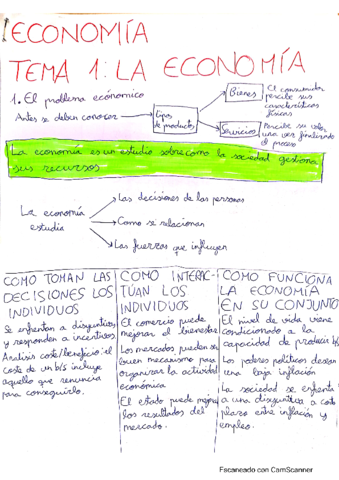 ECONOMÍA
TEMA 1: LA ECONOMÍA
1. El problema económico
Antes se deben conocer
tipos de productos
Bienes
El consumidor
percibe sus
características
físicas
Servicios
Percibe su valor
una vez finalizado
el proceso
La economía es un estudio sobre como la sociedad gestiona
sus recursos
La economía
estudia
Las decisiones de las personas
Como se relacionan
Las fuerzas que influyen
COMO TOMAN LAS
DECISIONES LOS
INDIVIDUOS
Se enfrentan a disyuntivas
y responden a incentivos.
Análisis coste/beneficio: el
coste de un b/s incluye
aquello que renuncia
para conseguirlo.
COMO INTERAC-
TÚAN LOS
INDIVIDUOS
El comercio puede
mejorar el bienestar
Los mercados pueden ser
buen mecanismo para
organizar la actividad
económica
El estado puede mejorar
los resultados del
mercado.
COMO FUNCIONA
LA ECONOMÍA
EN SU CONJUNTO
El nivel de vida viene
condicionado a la
capacidad de producir b/s
Los poderes políticos desean
una baja inflación
La sociedad se enfrenta
a una disyuntiva a corto
plazo entre inflación y
empleo.
Escaneado con CamScanner